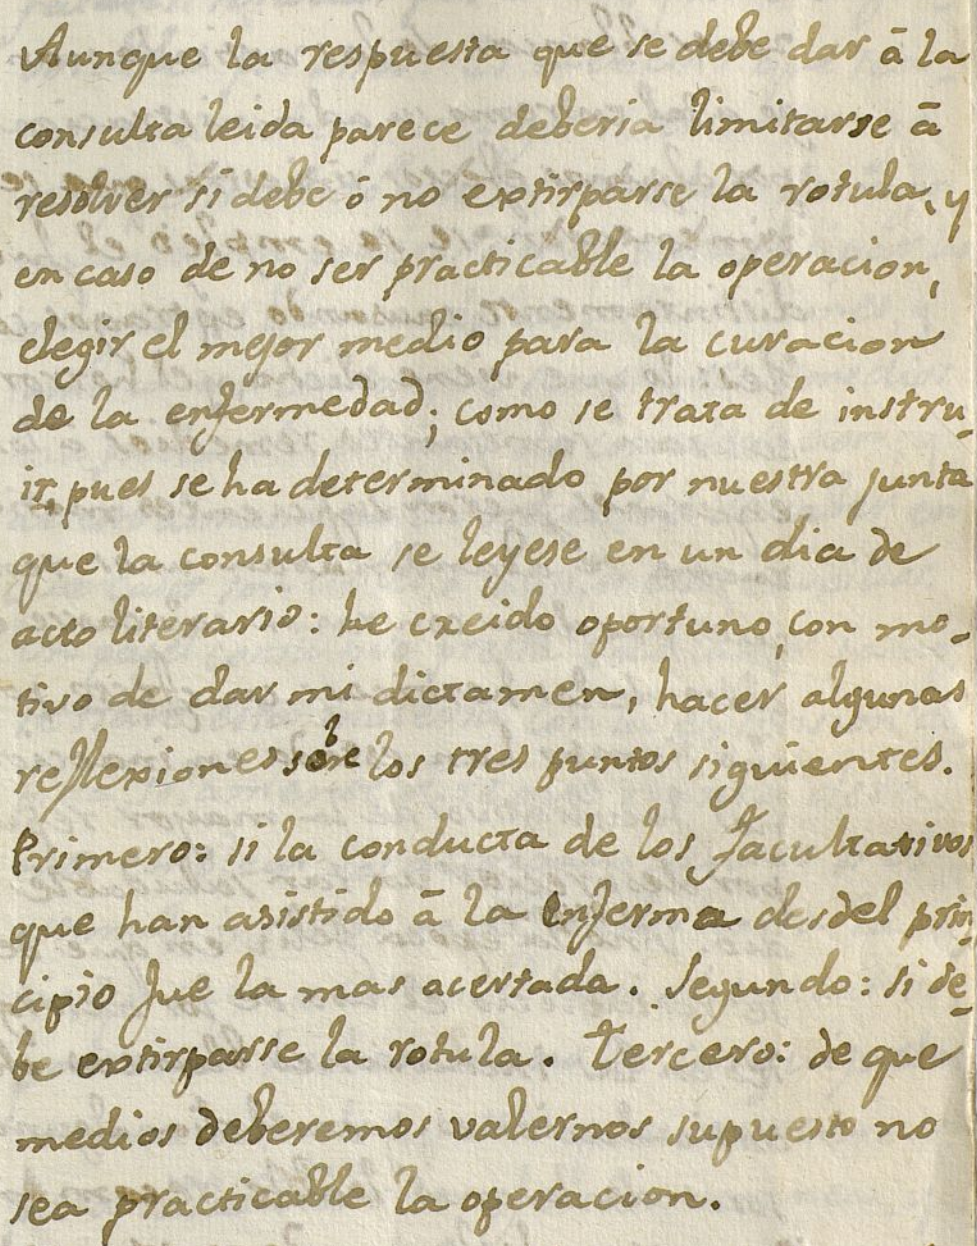 Aunque la respuesta que se debe dar ā la
consulta leida parece deberia limitarse ā
resolver si debe ó no extirparse la rotula, y
en caso de no ser practicable la operacion,
elegir el mejor medio para la curacion
de la enfermedad; como se trata de instru-
ir, pues se ha determinado por nuestra junta
que la consulta se leyese en un dia de
acto literario: he creido oportuno, con mo-
tivo de dar mi dictamen, hacer algunas
reflexiones sobre los tres puntos siguientes.
Primero: si la conducta de los Facultativos
que han asistido ā la enferma desdel prin-
cipio fue la mas acertada. Segundo: si de-
be extirparse la rotula. Tercero: de que
medios deberemos valernos supuesto no
sea practicable la operacion.